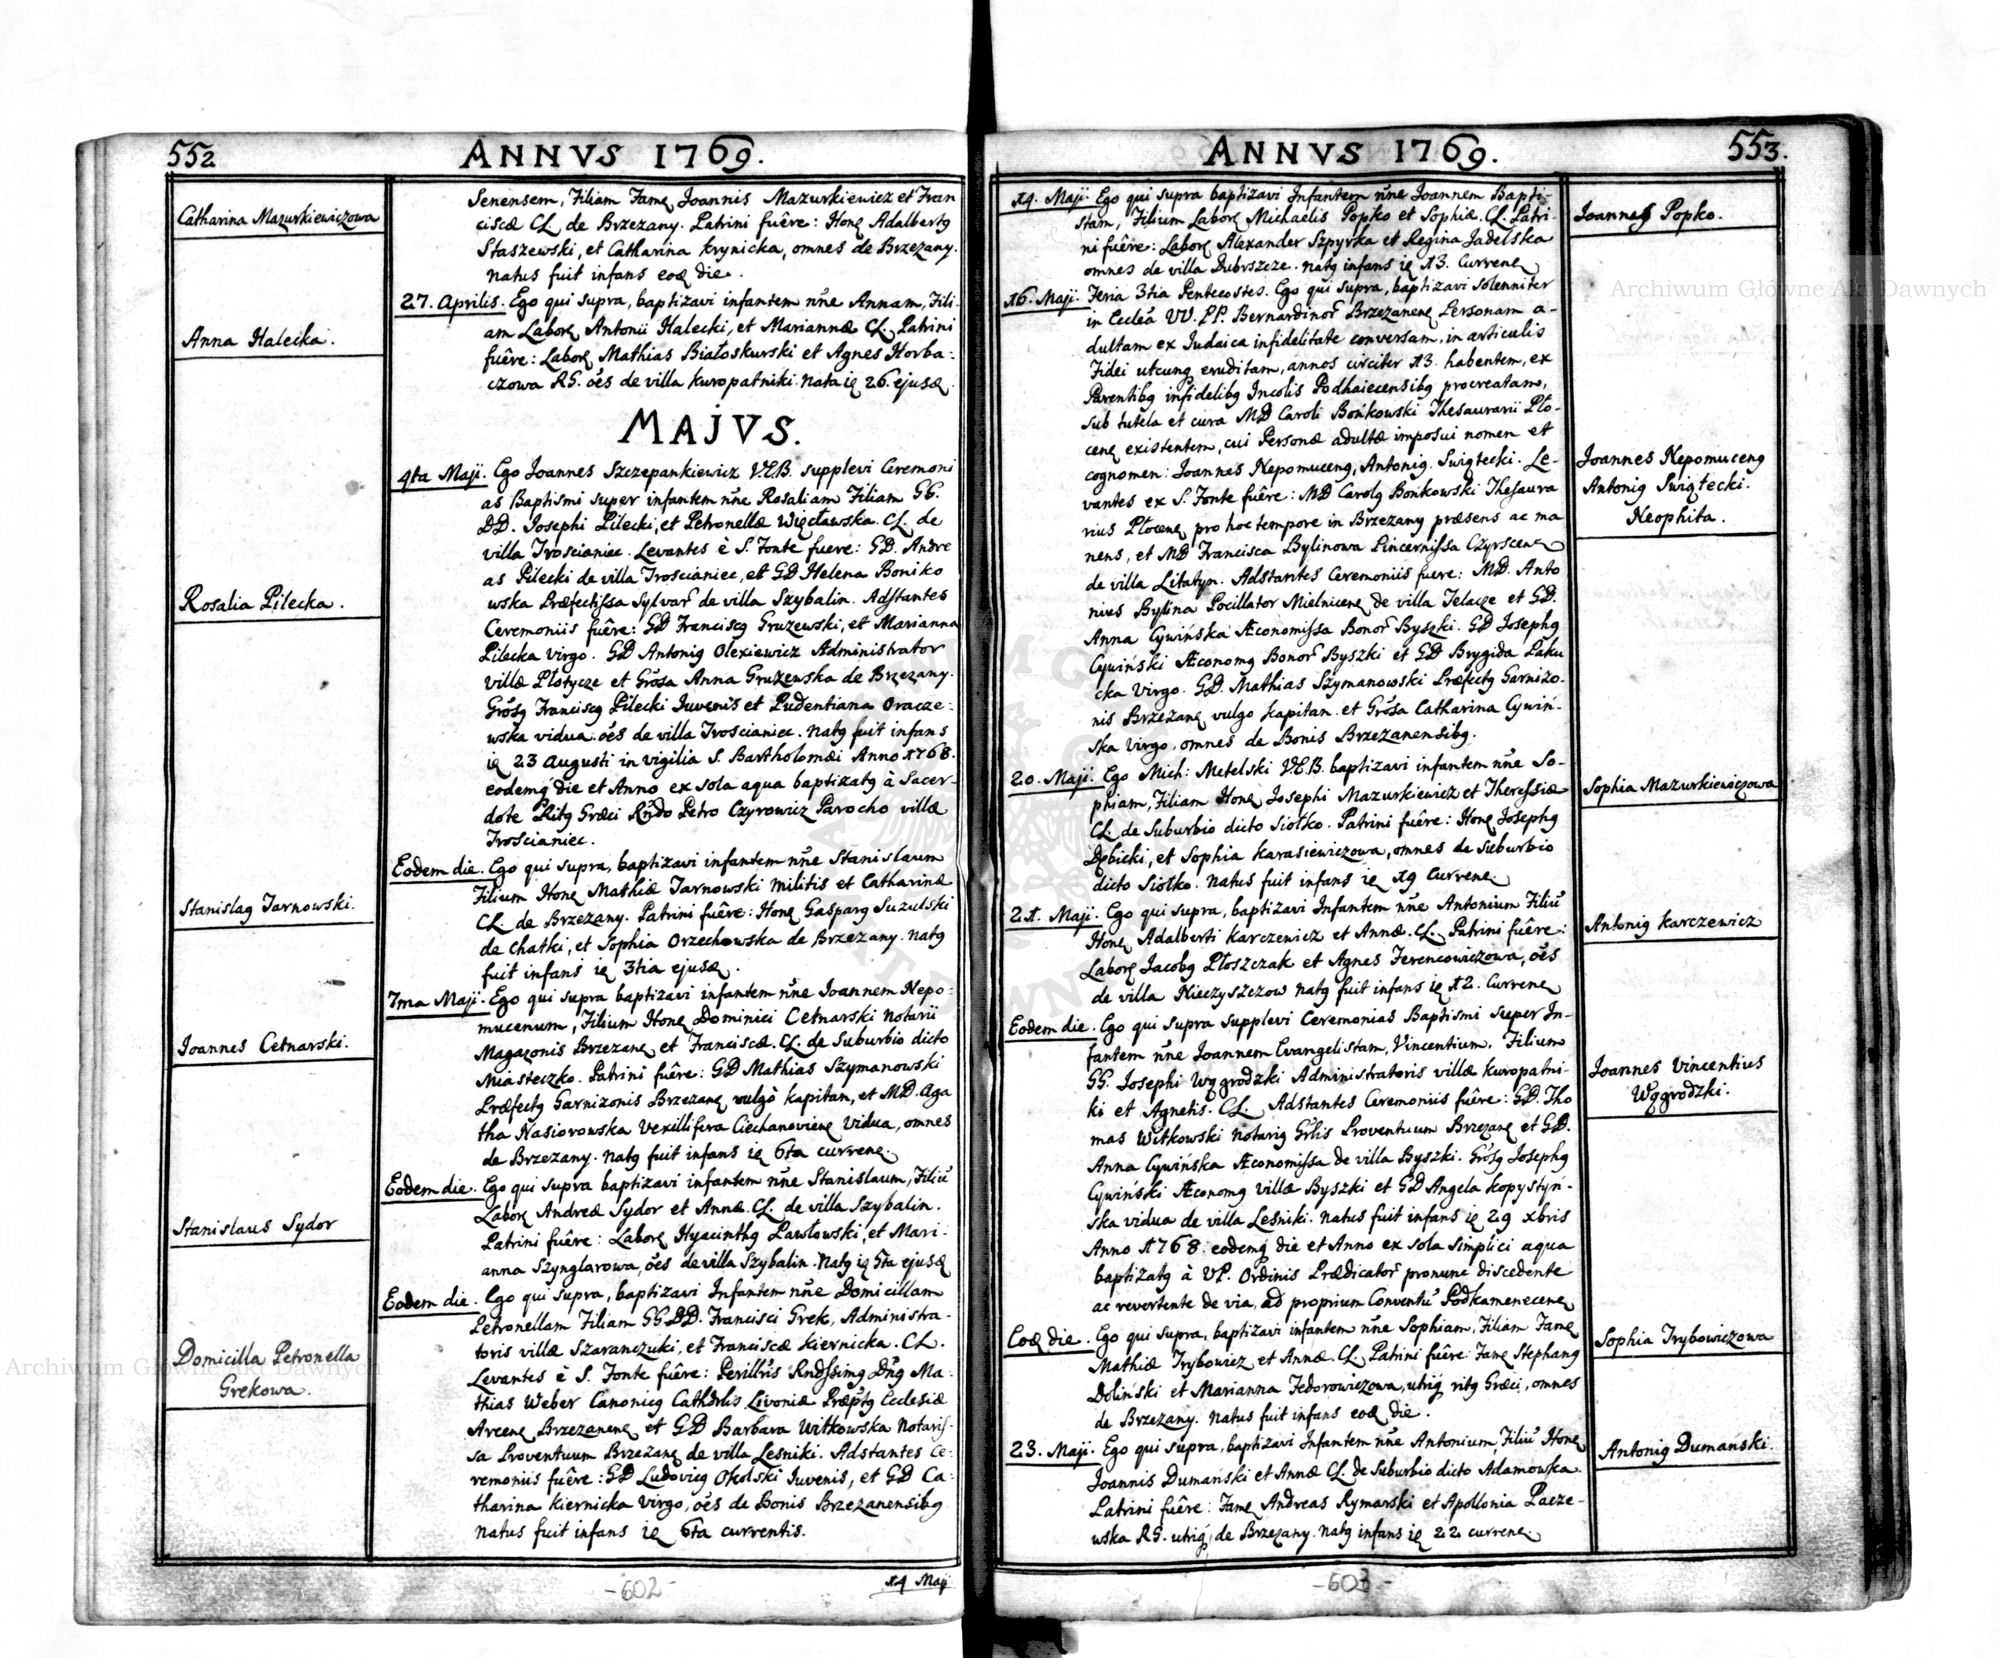 552
ANNVS 1769.
Catharina Mazurkiewiczowa
Senensem, Filiam Famę Joannis Mazurkiewicz et Fran
ciscæ CL. de Brzezany. Patrini fuêre: Honę Adalbertꝯ
Staszewski, et Catharina Krynicka, omnes de Brzezany.
natus fuit infans eoꝗ die.
27. Aprilis. Ego qui supra, baptizavi infantem nñe Annam, Fili-
Anna Halecka.
am Laborę Antonii Halecki, et Mariannæ CL. Patrini
fuêre: Laborę Mathias Białoskurski et Agnes Horba:
czowa RG. oẽs de villa Kuropatniki. Nata ię 26. ejusꝗ
MAJVS.
4ta Maji. Ego Joannes Szczepankiewicz V.E.B. supplevi Ceremoni
as Baptismi super infantem nñe Rosaliam Filiam GG.
DD. Josephi Pilecki, et Petronellæ Więcławska. CL. de
villa Troscianiec. Levantes è S. Fonte fuere: GD. Andre
as Pilecki de villa Troscianiec, et GD Helena Boniko
Rosalia Pilecka.
wska Præfectissa Sylvar̃ de villa Szybalin. Adstantes
Ceremoniis fuêre: GD Franciscꝯ Gruzewski, et Marianna
Pilecka virgo. GD Antoniꝯ Olexiewicz Administrator
villæ Plotycze et Grõsa Anna Gruzewska de Brzezany.
Grõsꝯ Franciscꝯ Pilecki Juvenis et Pudentiana Oracze:
wska vidua oẽs de villa Troscianiec. Natꝯ fuit infans
ię 23 Augusti in vigilia S. Bartholomæi Anno 1768.
eodemꝗ die et Anno ex sola aqua baptizatꝯ à Sacer-
dote Ritꝯ Græci Rñdo Petro Czyrowicz Parocho villæ
Troscianiec.
Eodem die. Ego qui supra, baptizavi infantem nñe Stanislaum
Stanislaꝯ Tarnowski.
Filium Honę Mathiæ Tarnowski militis et Catharinæ
CL. de Brzezany. Patrini fuêre: Honę Gasparꝯ Suzulski
de Chatki, et Sophia Orzechowska de Brzezany. Natꝯ
fuit infans ię 3tia ejusꝗ.
7ma Maji. Ego qui supra baptizavi infantem nñe Joannem Nepo-
mucenum, Filium Honę Dominici Cetnarski Notarii
Joannes Cetnarski.
Magazonis Brzezanę et Franciscæ. CL. de Suburbio dicto
Miasteczko. Patrini fuêre: GD Mathias Szymanowski
Præfectꝯ Garnizonis Brzezanę vulgò Kapitan, et MD. Aga
tha Nasiorowska Vexillifera Ciechanovienę Vidua, omnes
de Brzezany. Natꝯ fuit infans ię 6ta currenę.
Eodem die. Ego qui supra baptizavi infantem nñe Stanislaum, Filiũ
Laborę Andreæ Sydor et Annæ. CL. de villa Szybalin.
Stanislaus Sydor
Patrini fuêre: Laborę Hyacinthꝯ Pawłowski, et Mari-
anna Szynglarowa, oẽs de villa Szybalin. Natꝯ ię 5ta ejusꝗ
Eodem die. Ego qui supra, baptizavi Infantem nñe Domicillam
Petronellam Filiam GGDD. Francisci Grek, Administra-
toris villæ Szaranczuki, et Franciscæ Kiernicka. CL.
Domicilla Petronella
Grekowa.
Levantes è S. Fonte fuêre: Perillr̃is Rndssimꝯ Dñꝯ Ma-
thias Weber Canonicꝯ Cathdrlis Livoniæ Præptꝯ Ecclesiæ
Arcenę Brzezanenę et GD Barbara Witkowska Notaris-
sa Proventuum Brzezanę de villa Lesniki. Adstantes Ce-
remoniis fuêre: GD Ludovicꝯ Okolski Juvenis, et GD Ca-
tharina Kiernicka virgo, oẽs de Bonis Brzezanensibꝯ
natus fuit infans ię 6ta currentis.
14 Maji
-602-
553.
ANNVS 1769.
14. Maji. Ego qui supra baptizavi Infantem nñe Joannem Bapti-
Joannes Popko.
stam, Filium Laborę Michaelis Popko et Sophiæ. CL. Patri-
ni fuêre: Laborę Alexander Szpyrka et Regina Jadelska
omnes de villa Dubrszcze. natꝯ infans ię 13. Currenę
16. Maji. Feria 3tia Pentecostes. Ego qui supra, baptizavi solenniter
in Eccleã VV. PP. Bernardinor̃ Brzezanenę Personam a-
dultam ex Judaica infidelitate conversam, in articulis
Fidei utcunꝗ eruditam, annos circiter 13. habentem, ex
Parentibꝯ infidelibꝯ Incolis Podhaiecensibꝯ procreatam,
sub tutela et cura MD Caroli Bońkowski Thesaurarii Pło-
cenę existentem, cui Personæ adultæ imposui nomen et
cognomen: Joannes Nepomucenꝯ, Antoniꝯ Swiątecki. Le-
Joannes Nepomucenꝯ
Antoniꝯ Swiątecki.
Neophita.
vantes ex S. Fonte fuêre: MD Carolꝯ Bońkowski Thesaura
rius Płocenę pro hoc tempore in Brzezany præsens ac ma
nens, et MD Francisca Bylinowa Pincernissa Czyrscenę
de villa Litatyn. Adstantes Ceremoniis fuere: MD. Anto
nius Bylina Pocillator Mielnicenę de villa Telacze et GD.
Anna Cywińska Æconomissa Bonor̃ Byszki. GD Josephꝯ
Cywiński Æconomꝯ Bonor̃ Byszki et GD Brygida Łaku
cka Virgo. GD. Mathias Szymanowski Præfectꝯ Garnizo-
nis Brzezanę vulgo Kapitan. et Grõsa Catharina Cywiń-
ska Virgo, omnes de Bonis Brzezanensibꝯ.
20. Maji. Ego Mich: Metelski V.E.B. baptizavi infantem nñe So-
Sophia Mazurkiewiczowa
phiam, Filiam Honę Josephi Mazurkiewicz et Theressiæ
CL. de Suburbio dicto Siołko. Patrini fuêre: Honę Josephꝯ
Dębicki, et Sophia Karasiewiczowa, omnes de Suburbio
dicto Siołko. Natus fuit infans ię 19 Currenę
21. Maji. Ego qui supra, baptizavi Infantem nñe Antonium Filiũ
Antoniꝯ Karczewicz
Honę Adalberti Karczewicz et Annæ. CL. Patrini fuêre:
Laborę Jacobꝯ Płoszczak et Agnes Ferencowiczowa, oẽs
de villa Nieczyszczow natꝯ fuit infans ię 12. Currenę
Eodem die. Ego qui supra supplevi Ceremonias Baptismi super In-
fantem nñe Joannem Evangelistam, Vincentium. Filium
Joannes Vincentius
Wągrodzki.
GG. Josephi Wągrodzki Administratoris villæ Kuropatni-
ki et Agnetis. CL. Adstantes Ceremoniis fuêre: GD. Tho
mas Witkowski Notariꝯ Grl̃is Proventuum Brzezanę et GD.
Anna Cywińska Æconomissa de villa Byszki. Grõsꝯ Josephꝯ
Cywiński Æconomꝯ villæ Byszki et GD Angela Kopystyń-
ska vidua de villa Lesniki. Natus fuit infans ię 29 xbris
Anno 1768. eodemꝗ die et Anno ex sola simplici aqua
baptizatꝯ à VP. Ordinis Prædicator̃ pronunc discedente
ac revertente de via, ad proprium Conventũ Podkamenecenę
Eoꝗ die. Ego qui supra, baptizavi infantem nñe Sophiam, Filiam Famę
Sophia Trybowiczowa
Mathiæ Trybowicz et Annæ. CL. Patrini fuêre: Famę Stephanꝯ
Doliński et Marianna Fedorowiczowa, utriꝗ ritꝯ Græci, omnes
de Brzezany. Natus fuit infans eoꝗ die.
23. Maji. Ego qui supra, baptizavi Infantem nñe Antonium, Filiũ Honę
Antoniꝯ Dumański.
Joannis Dumański et Annæ CL. de Suburbio dicto Adamowka
Patrini fuêre: Famę Andreas Rymarski et Apollonia Pacze-
wska RG. utriꝗ de Brzezany. Natꝯ infans ię 22 currenę
-603-
Archiwum Główne Akt Dawnych
Archiwum Główne Akt Dawnych